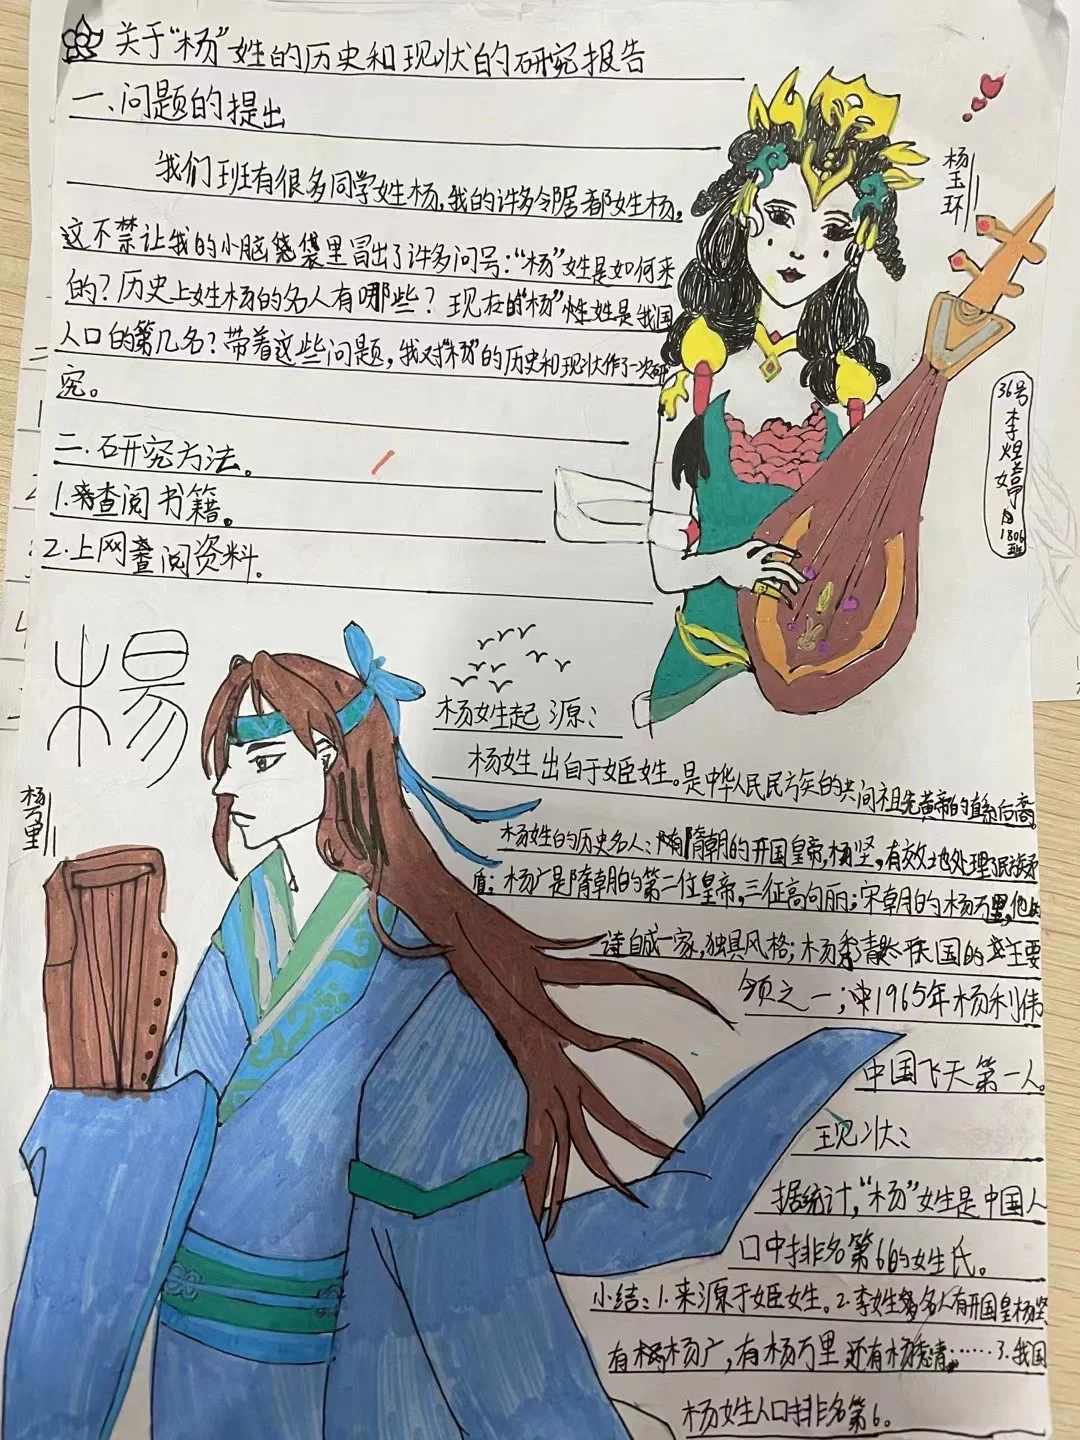 关于“杨”姓的历史和现状的研究报告
一、问题的提出
我们班有很多同学姓杨,我的许多邻居都姓杨,
这不禁让我的小脑袋里冒出了许多问号:“杨”姓是如何来
的?历史上姓杨的名人有哪些?现在的“杨”姓是我国
人口的第几名?带着这些问题,我对“杨”的历史和现状作了一次研
究。
二.研究方法。
1.查阅书籍。
2.上网查阅资料。
杨玉环
36号
李煜婷
1806班
楊
杨万里
杨姓起源:
杨姓出自于姬姓。是中华人民民族的共同祖先黄帝的直系后裔。
杨姓的历史名人:有隋朝的开国皇帝,杨坚,有效地处理了民族矛
盾;杨广是隋朝的第二位皇帝,三征高向丽;宋朝的杨万里,他的
诗自成一家,独具风格;杨秀清太平天国的主要
领之一;1965年杨利伟
中国飞天第一人。
现状:
据统计,“杨”姓是中国人
口中排名第6的姓氏。
小结:1.来源于姬姓。2.李姓名人有开国皇杨坚
有杨广,有杨万里还有杨秀清……3.我国
杨姓人口排名第6。